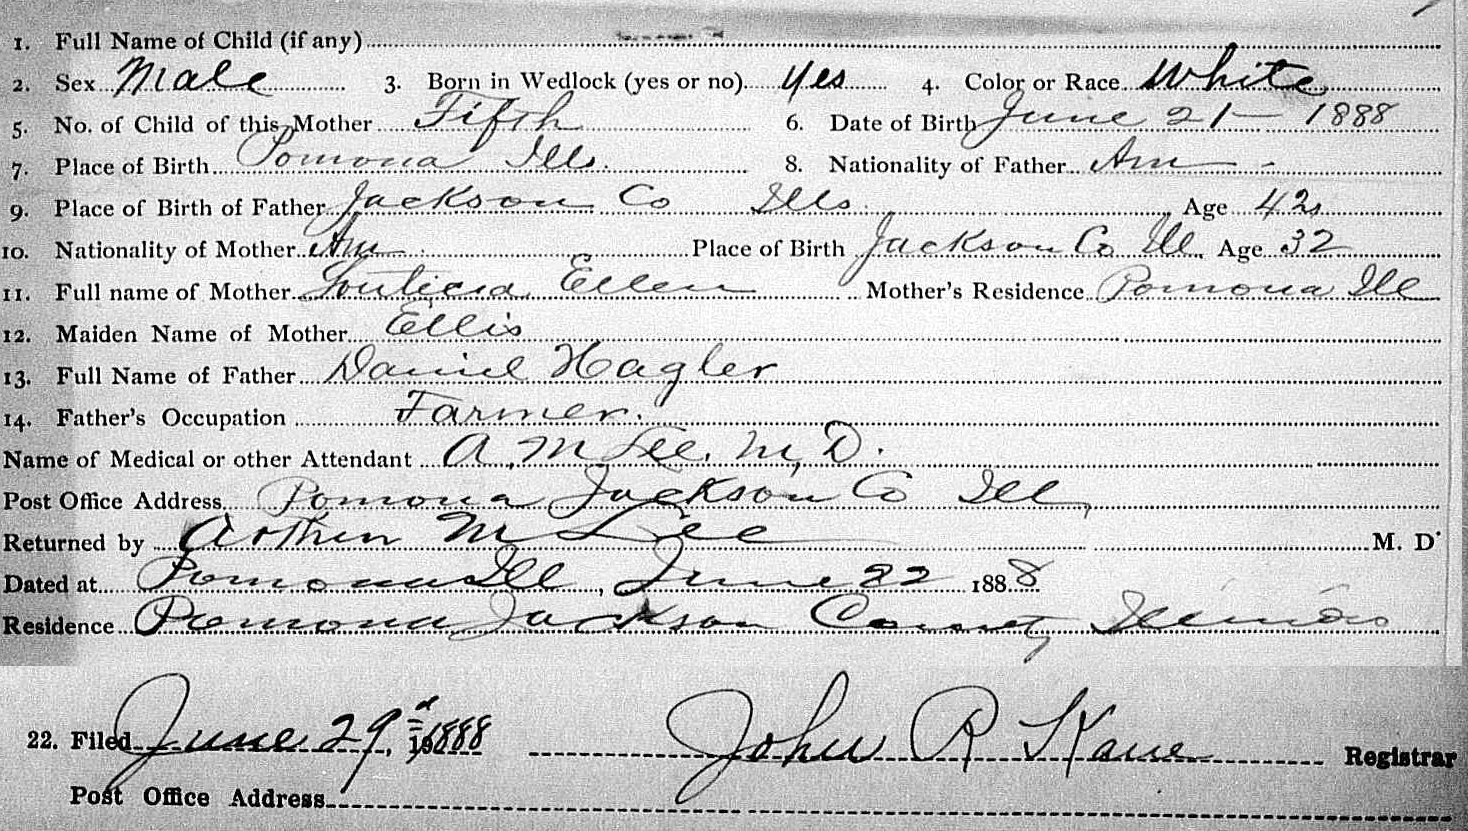 1. Full Name of Child (if any)
2. Sex Male 3. Born in Wedlock (yes or no) yes 4. Color or Race White
5. No. of Child of this Mother Fifth 6. Date of Birth June 21 - 1888
7. Place of Birth Pomona Ills. 8. Nationality of Father Am -
9. Place of Birth of Father Jackson Co Ills. Age 42
10. Nationality of Mother Am Place of Birth Jackson Co Ill. Age 32
11. Full name of Mother Ellen Mother's Residence Pomona Ill
12. Maiden Name of Mother Ellis
13. Full Name of Father Daniel Hagler
14. Father's Occupation Farmer.
Name of Medical or other Attendant A. M Lee. M, D.
Post Office Address Pomona Jackson Co Ill,
Returned by Arthur M Lee M. D.
Dated at Pomona Ill, June 22 1888
Residence Pomona Jackson County Illinois
22. Filed June 29 1888 John R Kane Registrar
Post Office Address